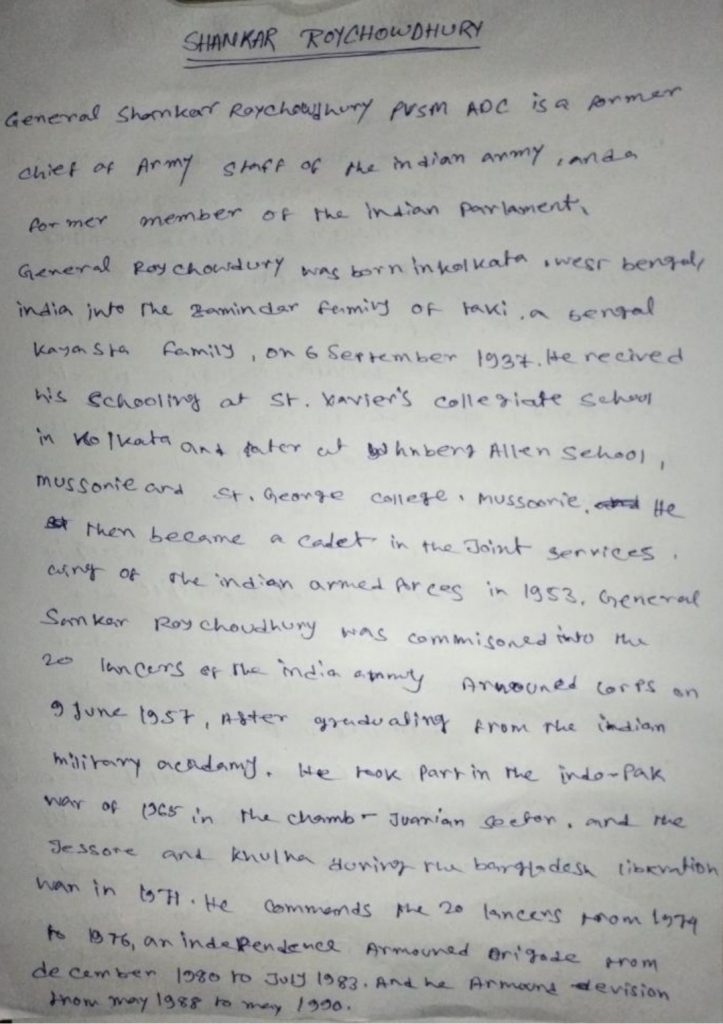 SHANKAR ROYCHOWDHURY
General Shankar Roychowdhury PVSM ADC is a former
chief of Army staff of the indian army, and a
former member of the indian Parlament,
General Roy chowdury was born in kolkata, west bengal,
india into the zamindar family of taki, a bengal
Kayasta family, on 6 September 1937. He recived
his schooling at St. Xavier's collegiate school
in Kolkata and later at Whnberg Allen school,
mussorie and St. George college, mussoorie. He
then became a cadet in the Joint services
wing of the indian armed forces in 1953. General
Sankar Roy choudhury was commisoned into the
20 lancers of the india army Armouned corps on
9 June 1957, After graduating from the indian
military acadamy. He took Part in the indo-Pak
war of 1965 in the chamb - Juarian sector, and the
Jessore and Khulna during the bangladesh liberation
war in 1971. He commands the 20 lancers from 1974
to 1976, an independence Armouned Brigade from
december 1980 to July 1983. And he Armound devision
from may 1988 to may 1990.